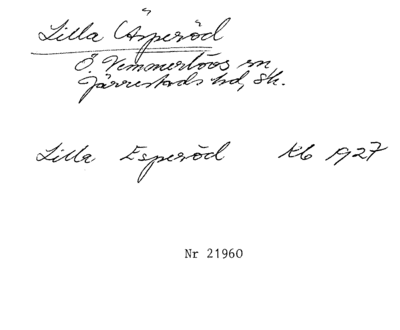 Lilla Äsperöd
Ö. Vemmerlövs sn,
Järrestads hd, Sk.
Lilla Esperöd Kb 1927
Nr 21960